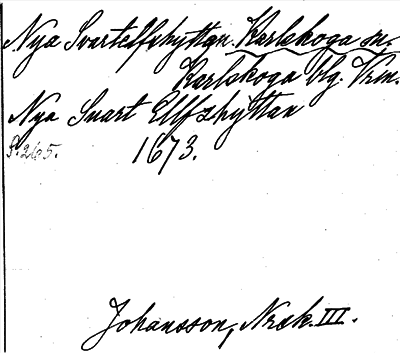 Nya Svartelfshyttan. Karlskoga sn.
Karlskoga bg. Vrm.
Nya Suart Ellfzhyttan
S. 265. 1673.
Johansson, Nrsk. III.